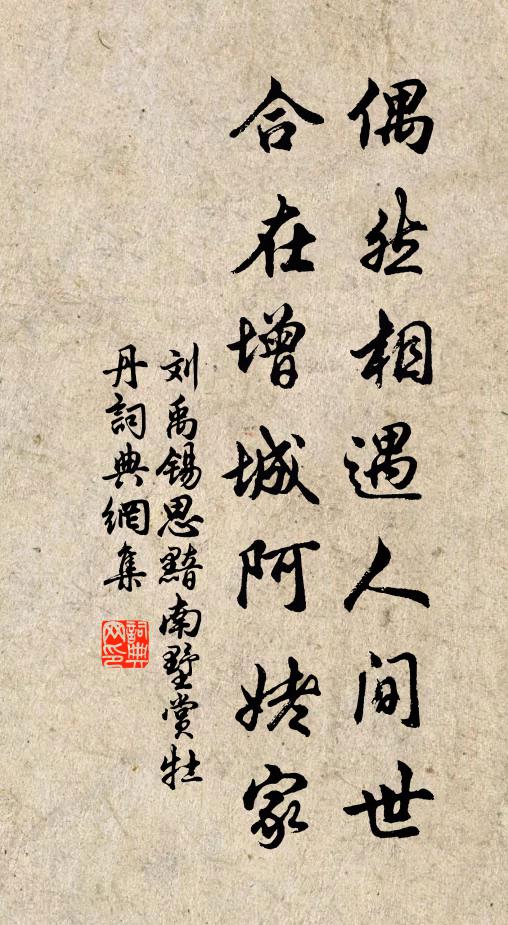 偶然相遇人间世
合在增城阿姥家
刘禹锡思黯南墅赏牡
丹詞典網集
詞典
网印